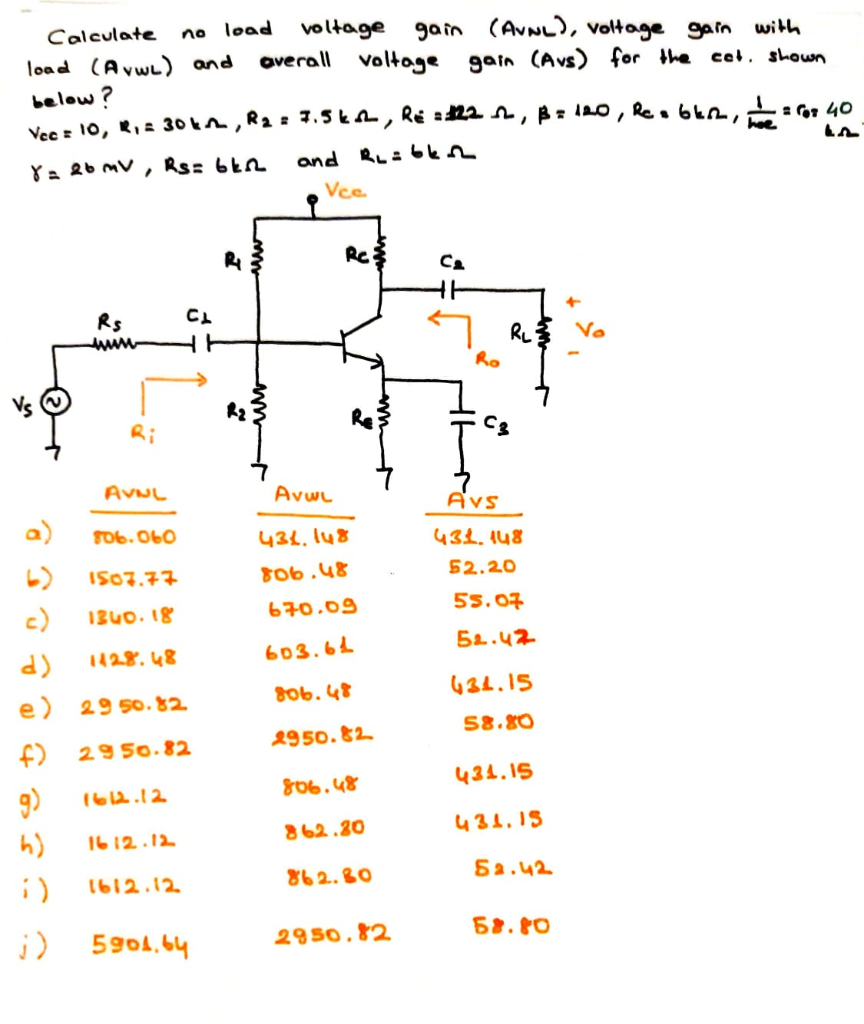 Calculate no load voltage gain (AVNL), voltage gain with
load (AVWL) and overall voltage gain (Avs) for the cct. shown
below?
Vcc = 10, R1 = 30 kΩ, R2 = 7.5 kΩ, RE = 122 Ω, β = 120, Rc = 6kΩ, 1/hoe = 40 kΩ
γ = 26 mV, Rs = 6kΩ and RL = 6kΩ
Vcc
R1 Rc C2
Rs C1 RL + Vo -
Ro
Vs R2 RE C3
Ri
AVNL AVWL AVS
a) 806.060 431.148 431.148
b) 1507.77 806.48 52.20
c) 1340.18 670.09 55.07
d) 1128.48 603.61 52.42
e) 2950.82 806.48 431.15
f) 2950.82 2950.82 58.80
g) 1612.12 806.48 431.15
h) 1612.12 862.80 431.15
i) 1612.12 862.80 52.42
j) 5901.64 2950.82 58.80